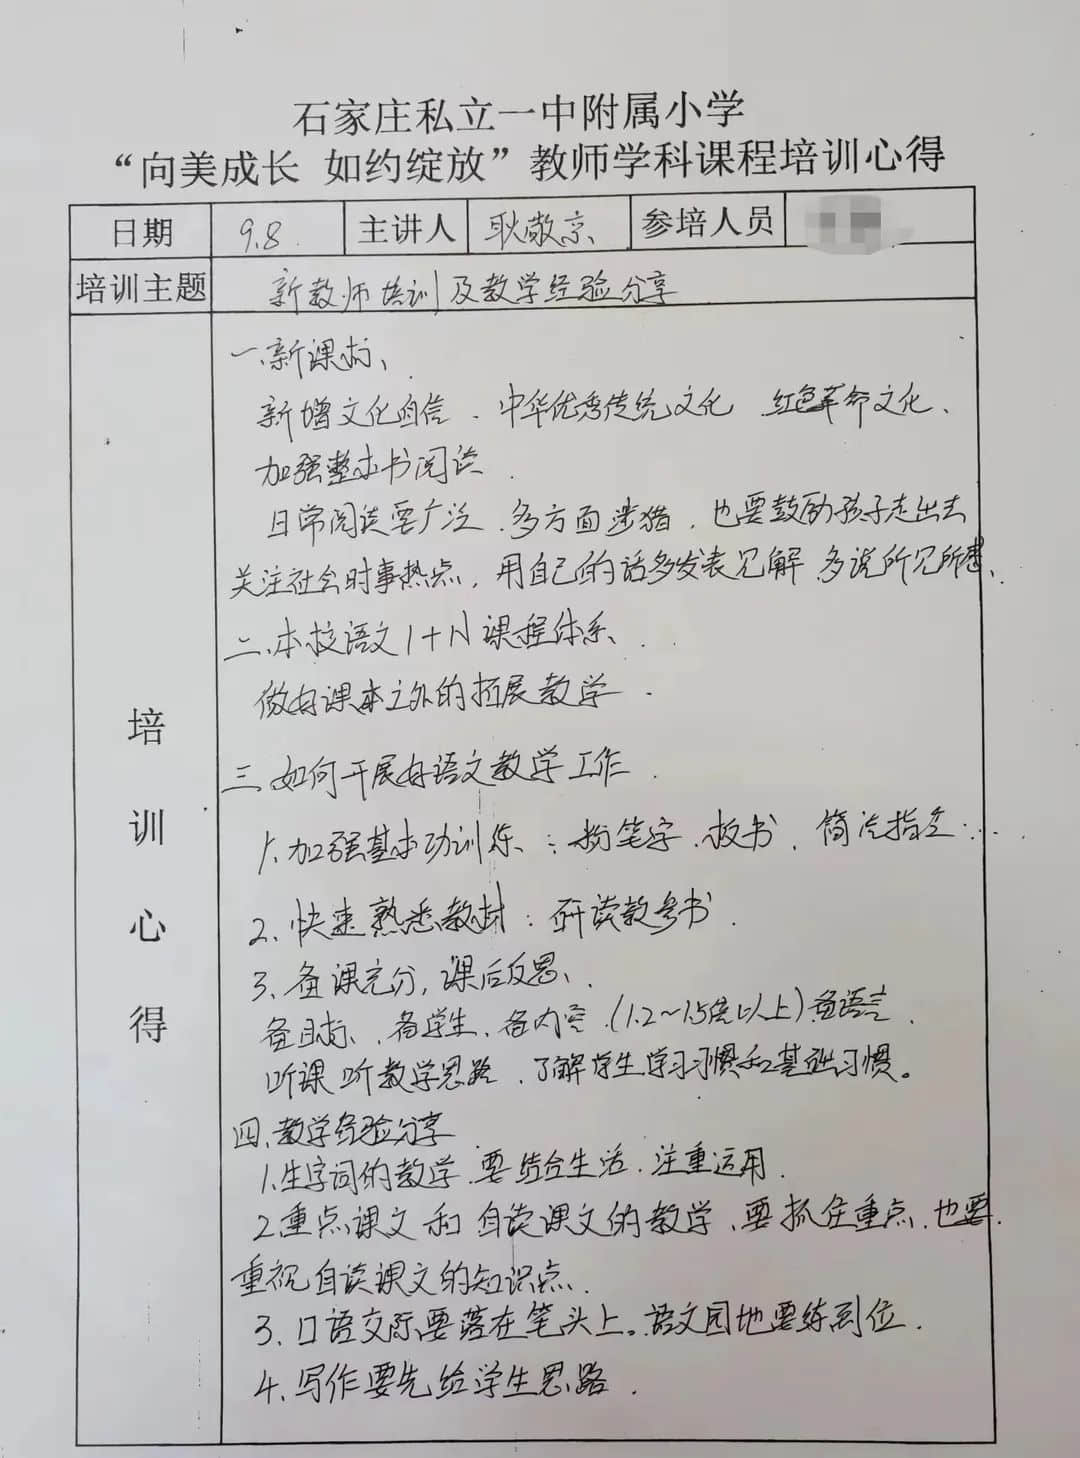 石家庄私立一中附属小学
“向美成长 如约绽放”教师学科课程培训心得
日期 9.8. 主讲人 耿敬京 参培人员
培训主题 新教师培训及教学经验分享
培训心得
一、新课标、
新增文化自信、中华优秀传统文化 红色革命文化、
加强整本书阅读.
日常阅读要广泛、多方面涉猎,也要鼓励孩子走出去
关注社会时事热点,用自己的话多发表见解 多说所见所想、
二、本校语文1+N课程体系、
做好课本之外的拓展教学.
三、如何开展好语文教学工作.
1、加强基本功训练:粉笔字、板书、简洁指令…
2、快速熟悉教材:研读教参书.
3、备课充分,课后反思、
备目标、备学生、备内容、(1.2~1.5倍以上)备语言.
听课听教学思路、了解学生学习习惯和基础习惯。
四、教学经验分享
1.生字词的教学、要结合生活、注重运用.
2.重点课文和自读课文的教学、要抓住重点、也要
重视自读课文的知识点、
3、口语交际要落在笔头上。语文园地要练到位.
4、写作要先给学生思路.